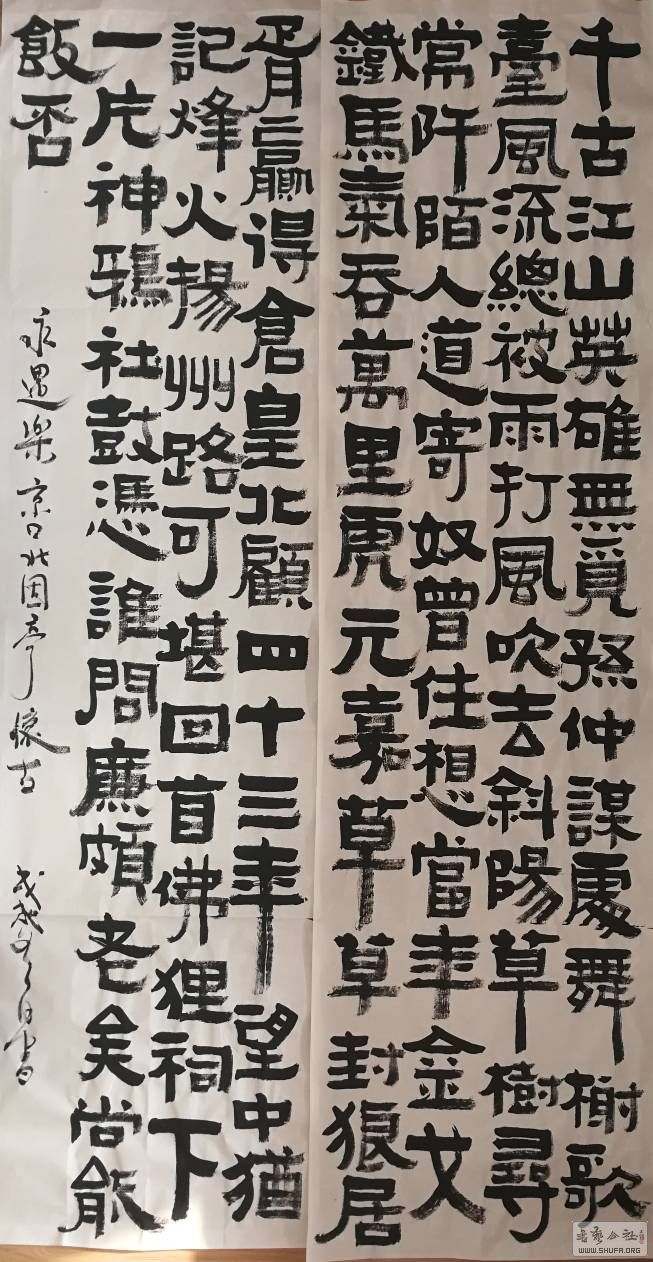 千古江山英雄無覓孫仲謀處舞榭歌
臺風流總被雨打風吹去斜陽草樹尋
常阡陌人道寄奴曾住想當年金戈
鐵馬氣吞萬里虎元嘉草草封狼居
胥贏得倉皇北顧四十三年望中猶
記烽火揚州路可堪回首佛狸祠下
一片神鴉社鼓憑誰問廉頗老矣尚能
飯否
永遇乐京口北固亭懷古
戊戌日書
书艺公社
WWW.SHUFA.ORG